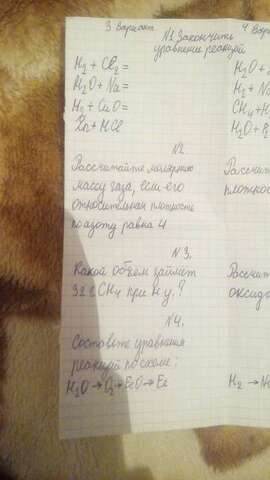 3 Вариант
N1 Закончить
уравнения реакций
H2 + Cl2 =
H2O + Na =
H2 + CuO =
Zn + HCl
N2
Рассчитайте молярную
массу газа, если его
относительная плотность
по азоту равна 4
N3.
Какой объем займет
32 г CH4 при н.у.?
N4.
Составьте уравнения
реакций по схеме:
H2O → O2 → →
4
H2O +
H2 +
CH4 +
H2O +
Рассчит
плотнос
Рассчит
оксида
H2 →